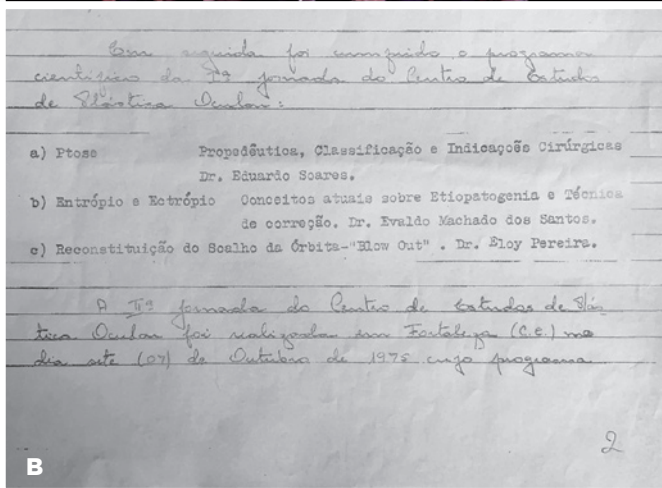 Em seguida foi cumprido o programa
científico da Iª jornada do Centro de Estudos
de Plástica Ocular:
a) Ptose Propedêutica, Classificação e Indicações Cirúrgicas
Dr. Eduardo Soares.
b) Entrópio e Ectrópio Conceitos atuais sobre Etiopatogenia e Técnica
de correção. Dr. Evaldo Machado dos Santos.
c) Reconstituição do Soalho da Órbita-"Blow Out" . Dr. Eloy Pereira.
A IIª jornada do Centro de Estudos de Plás
tica Ocular foi realizada em Fortaleza (C.E.) no
dia sete (07) de Outubro de 1975 cujo programa
2
B